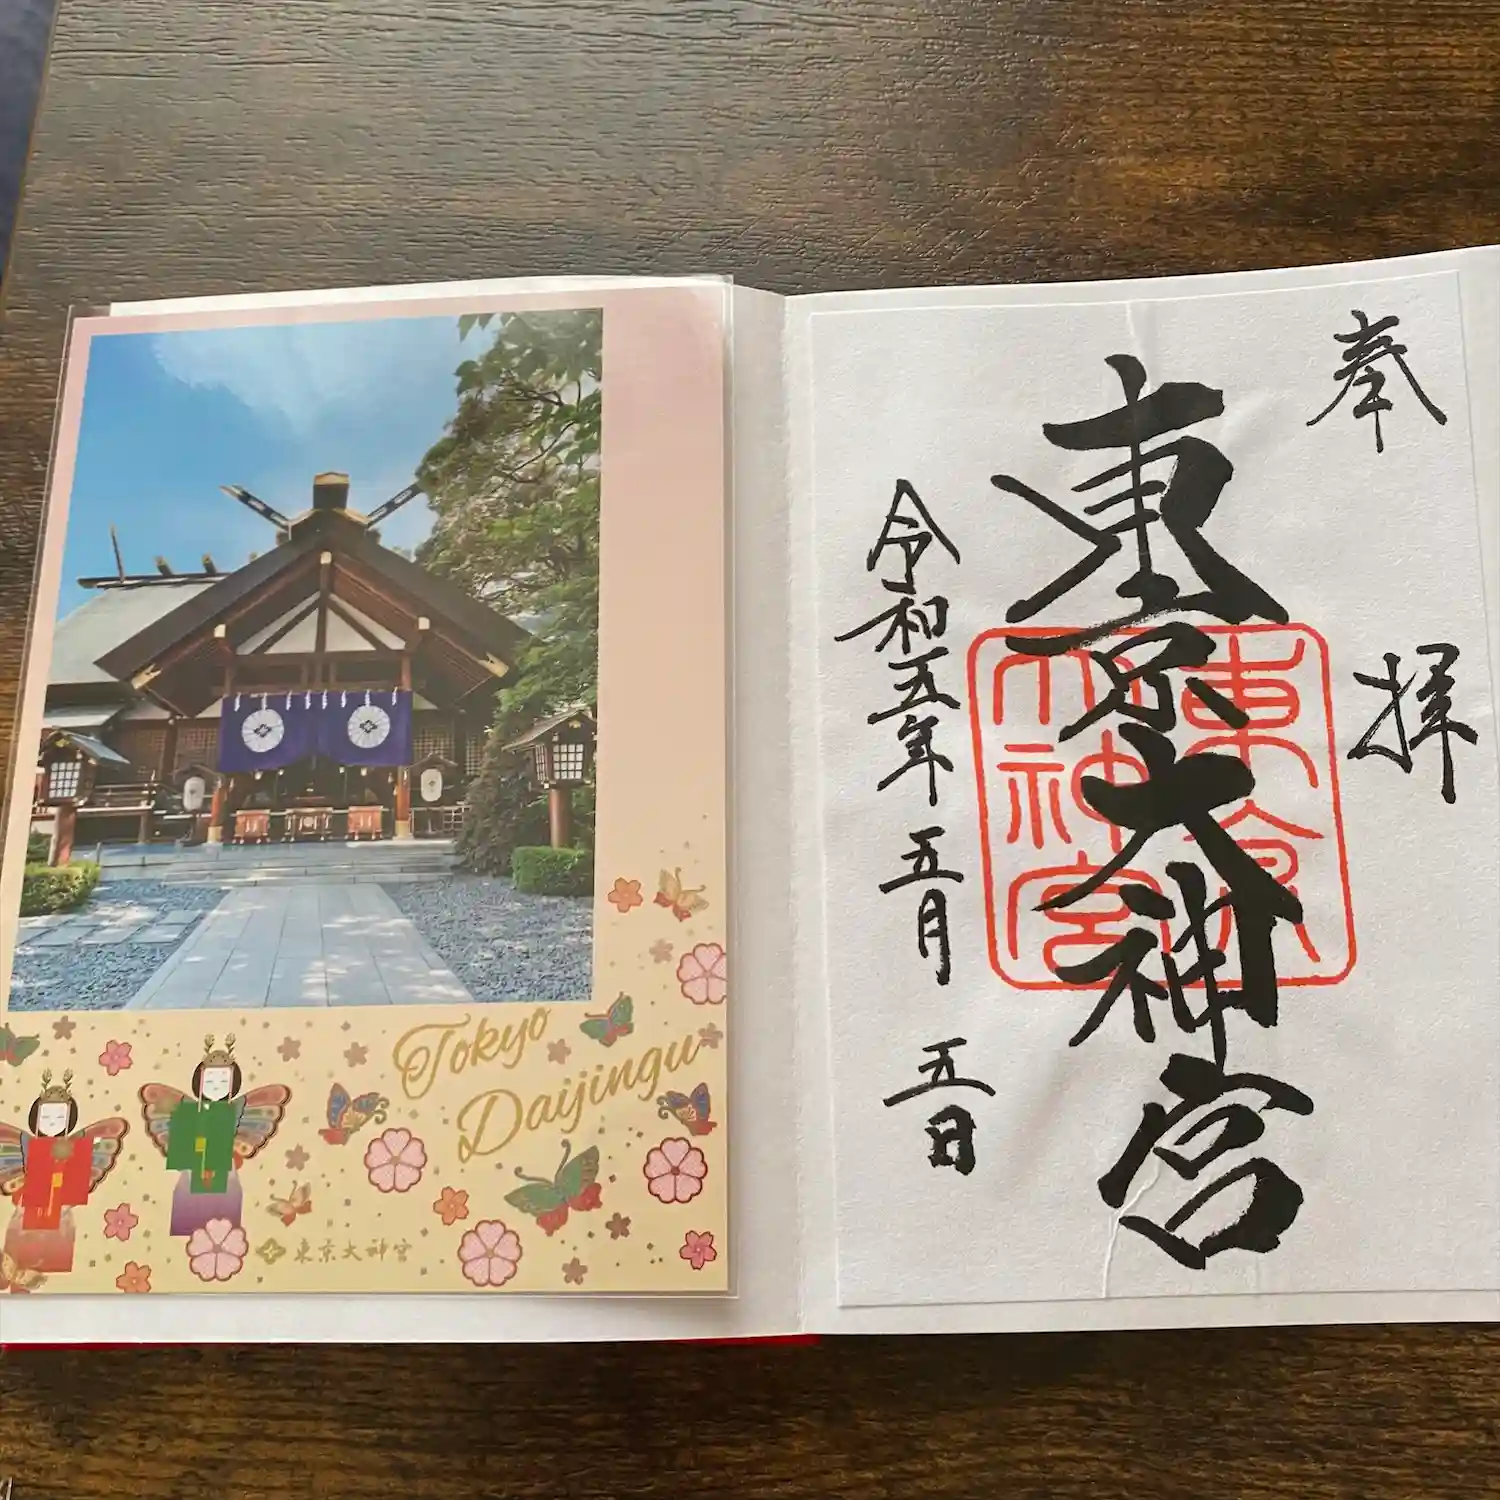 Tokyo
Daijingu
東京大神宮
奉拝
東京大神宮
東京大神宮
令和五年五月五日